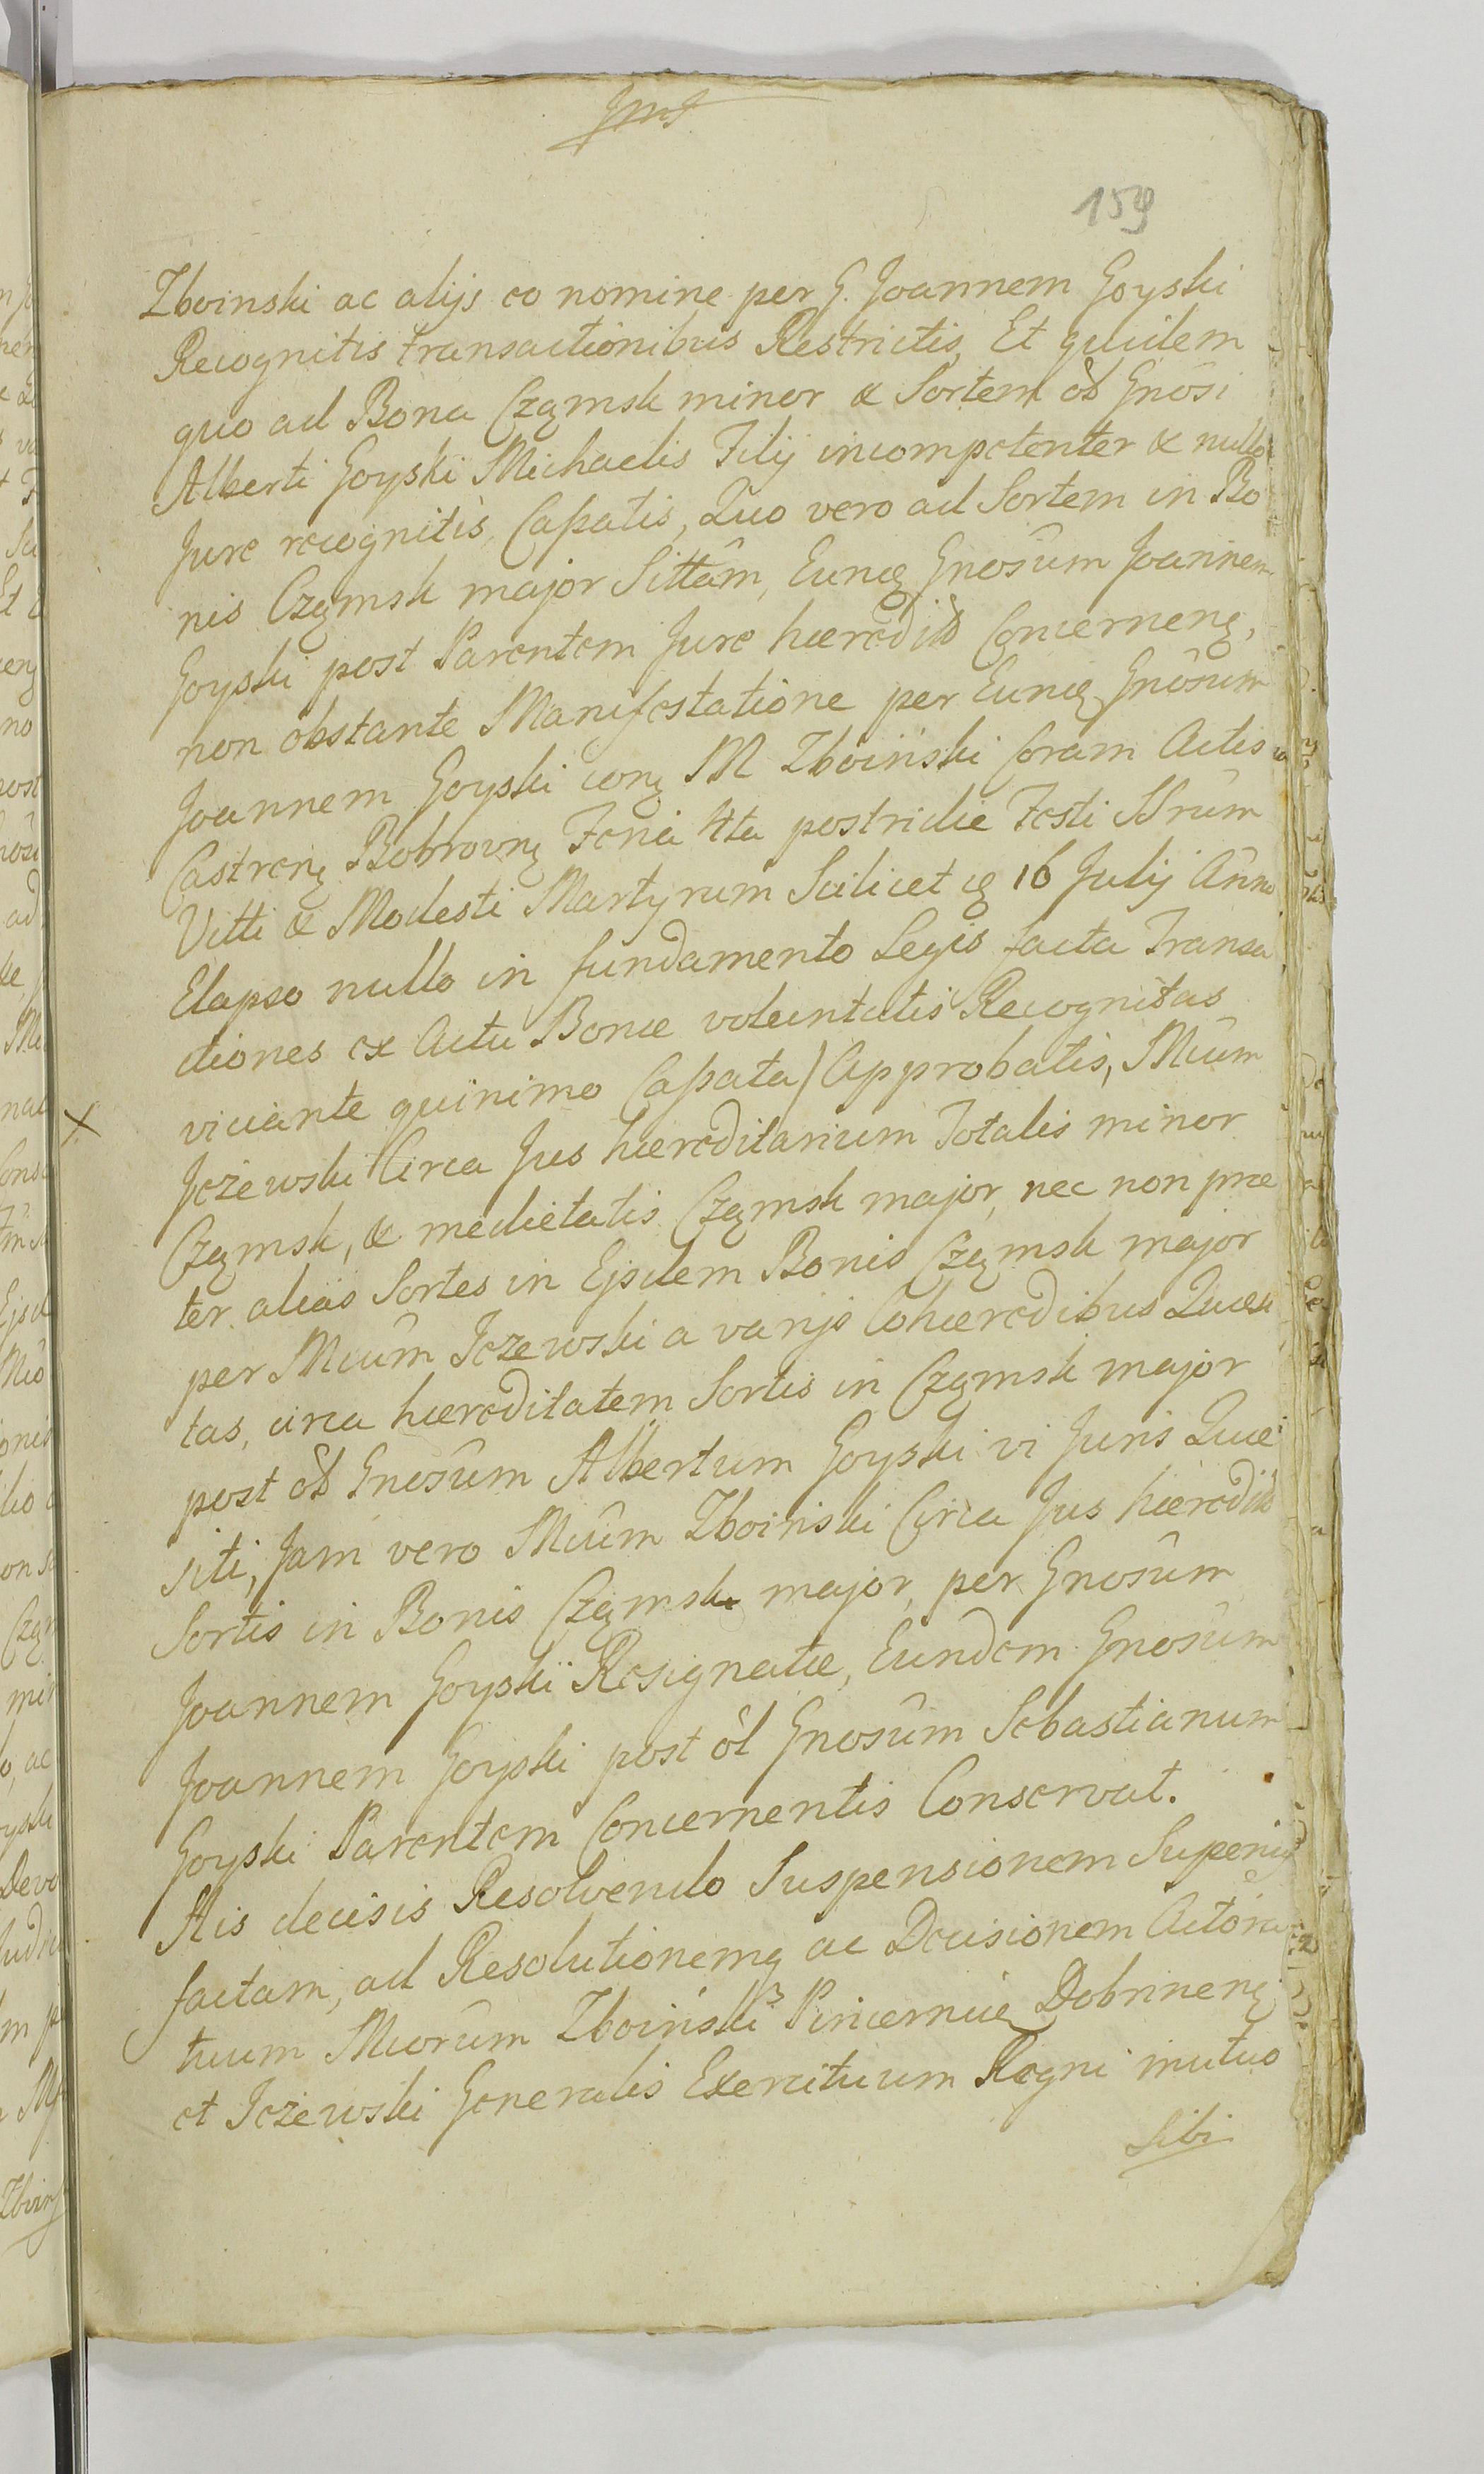 159
Zboinski ac alijs eo nomine per G. Joannem Goyski
Recognitis transactionibus Restrictis, Et quidem
quo ad Bona Częmsk minor & Sortem ôl Gnôsi
Alberti Goyski Michaelis Filij incompetenter & nullo
Jure recognitis, Caßatis, Quo vero ad Sortem in Bo
nis Częmsk major Sittâm, Eunę Gnosûm Joannem
Goyski post Parentem Jure hæredittô Concernenę,
non obstante Manifestatione per Eunę Gnôsum
Joannem Goyski conę M Zboiński Coram Actis
Castrenę Bobrovnę Feriâ 4ta postridie Festi SSrûm
Vitti & Modesti Martyrum Scilicet ę 16 Julij Anno
Elapso nullo in fundamento Legis facta Transa
ctiones ex Actu Bonæ voluntatis Recognitas
viciante quinimo Caßata) Approbatis, Mcûm
Jeżewski Circa Jus hæreditarium Totalis minor
Częmsk, & medietatis Częmsk major, nec non præ
ter alias Sortes in Ejsdem Bonis Częmsk major
per Mcûm Jeżewski a varijs Cohæredibus Quæsi
tas, circa hæreditatem Sortis in Częmsk major
post ôl Gnosûm Albertum Goyski vi Juris Quæ
siti, Jam vero Mcûm Zboinski Circa Jus hæredittô
Sortis in Bonis Częmsk major, per Gnosûm
Joannem Goyski Resignatæ, Eundem Gnosûm
Joannem Goyski post ôl Gnosûm Sebastianum
Goyski Parentem Concernentis Conservat.
His decisis Resolvendo Suspensionem Superię
factam, ad Resolutionemę ac Decisionem Actôra
tuum Mcorûm Zboiński Pincernæ Dobrinenę
et Jeżewski Generalis Exercituum Regni mutuo
Sibi